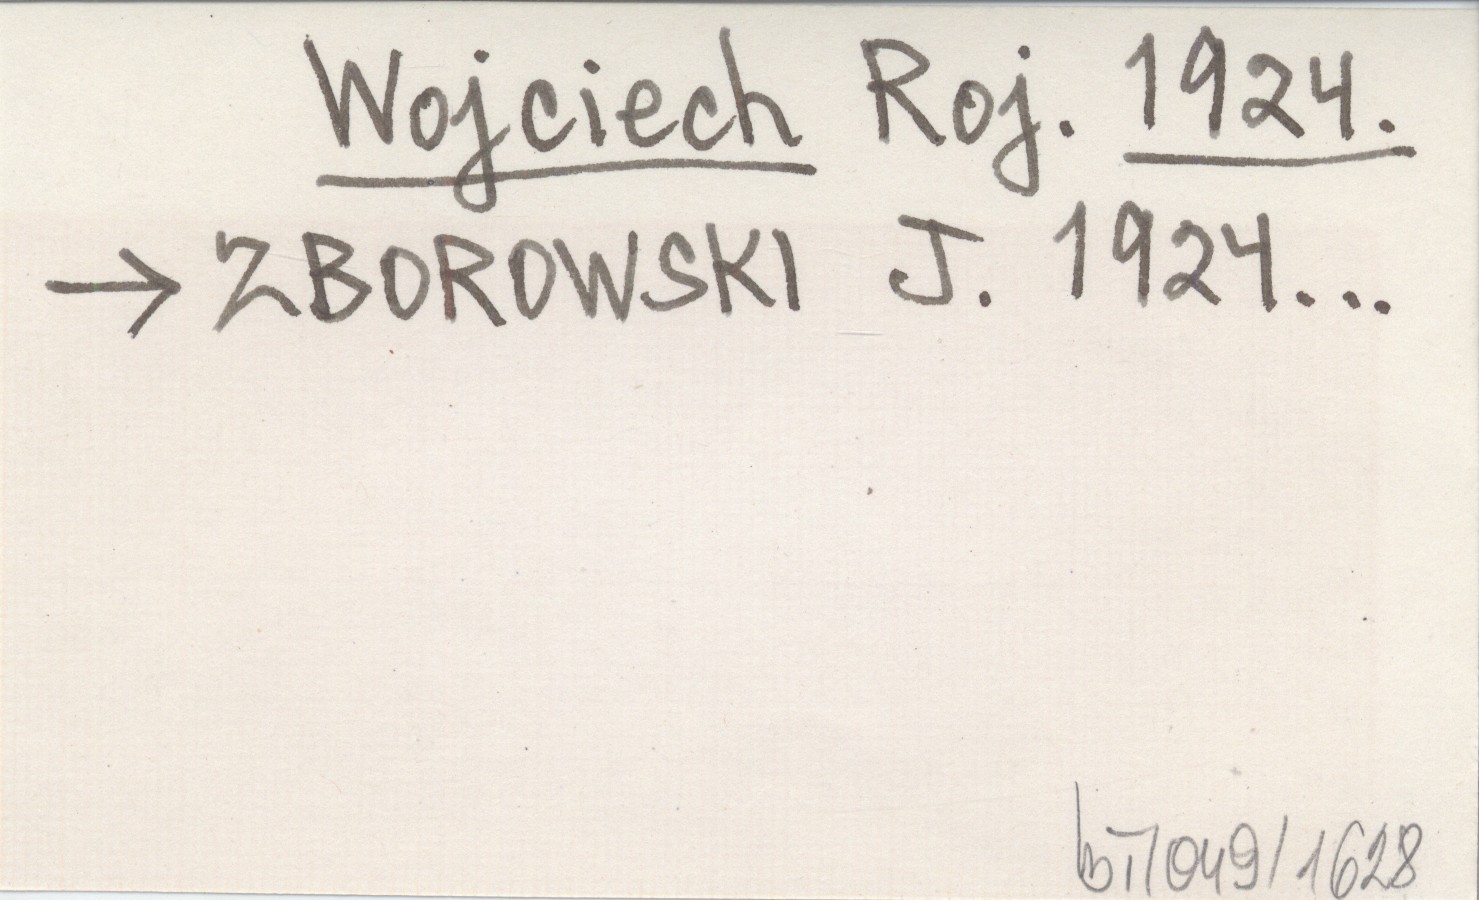 Wojciech Roj. 1924.
→ ZBOROWSKI J. 1924...
/049/1628